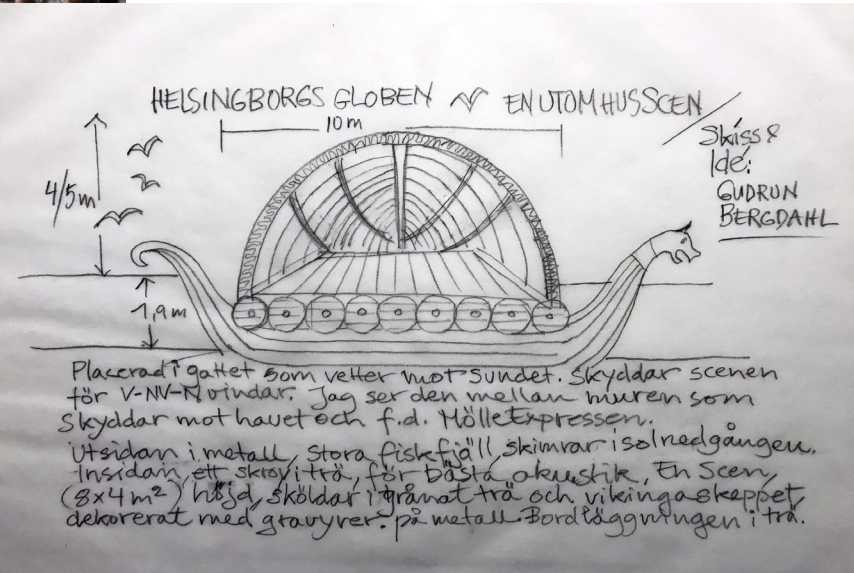 HELSINGBORGS GLOBEN EN UTOMHUSSCEN
10 m
Skiss &
Idé:
GUDRUN
BERGDAHL
4/5 m
1,9 m
Placerad i gattet som vetter mot Sundet. Skyddar scenen
för V-NV-N vindar. Jag ser den mellan muren som
Skyddar mot havet och f.d. MölleExpressen.
Utsidan i metall, stora fiskfjäll, skimrar i solnedgången.
Insidan, ett skrov i trä, för bästa akustik, En Scen,
(8x4 m²) höjd, sköldar i grånat trä och vikingaskeppet,
dekorerat med gravyrer. på metall. Bordläggningen i trä.